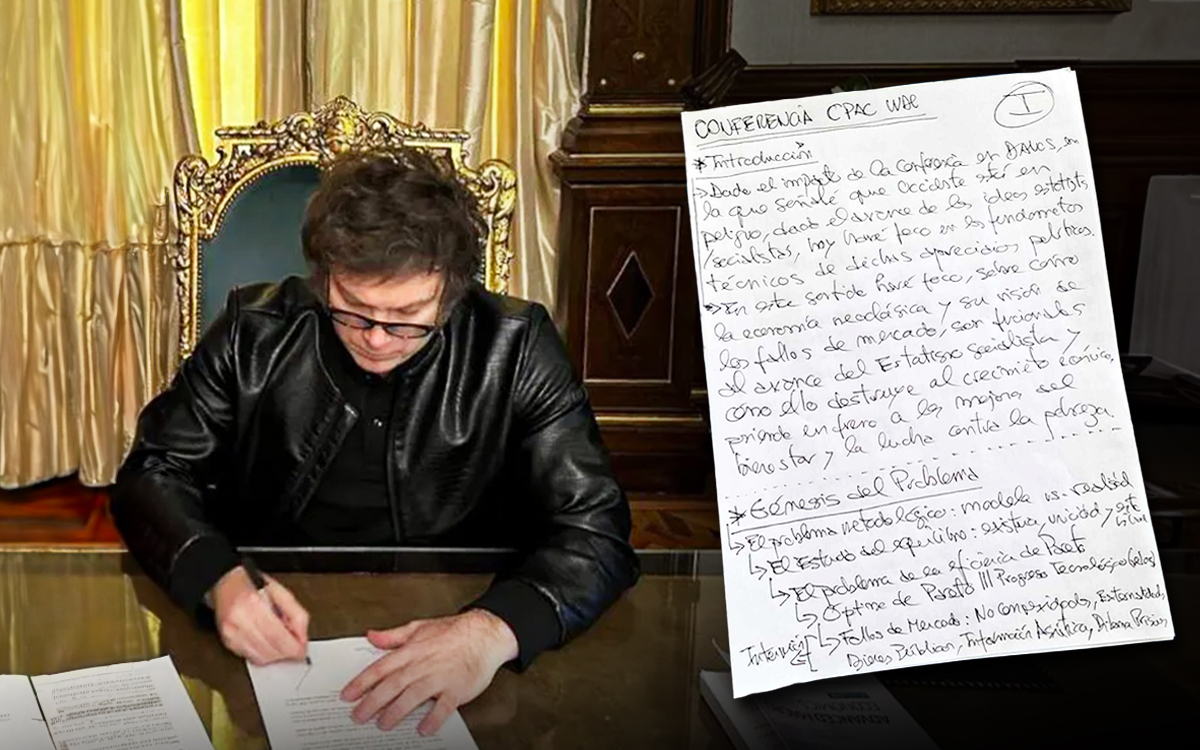 CONFERENCIA CPAC
I
* Introducción
→ Dado el impacto de la Conferencia en DAVOS, en
la que señalé que Occidente está en
peligro, dado el avance de las ideas estatistas
/socialistas, hoy haré foco en los fundamentos
técnicos de dichas aberraciones políticas.
→ En este sentido haré foco, sobre como
la economía neoclásica y su visión de
los fallos de mercado, son funcionales
al avance del Estatismo socialista y
cómo ello destruye al crecimiento económico,
poniendo un freno a la mejora del
bienestar y la lucha contra la pobreza.
* Génesis del Problema
↳ El problema metodológico: modelo vs. realidad
↳ El Estudio del equilibrio: existencia, unicidad y
↳ El problema de la eficiencia de Pareto
↳ Óptimo de Pareto ||| Progreso Tecnológico
↳ Fallos de Mercado: No Externalidad,
Bienes Públicos, Información Asimétrica,
ADVANCED
ECONOMICS